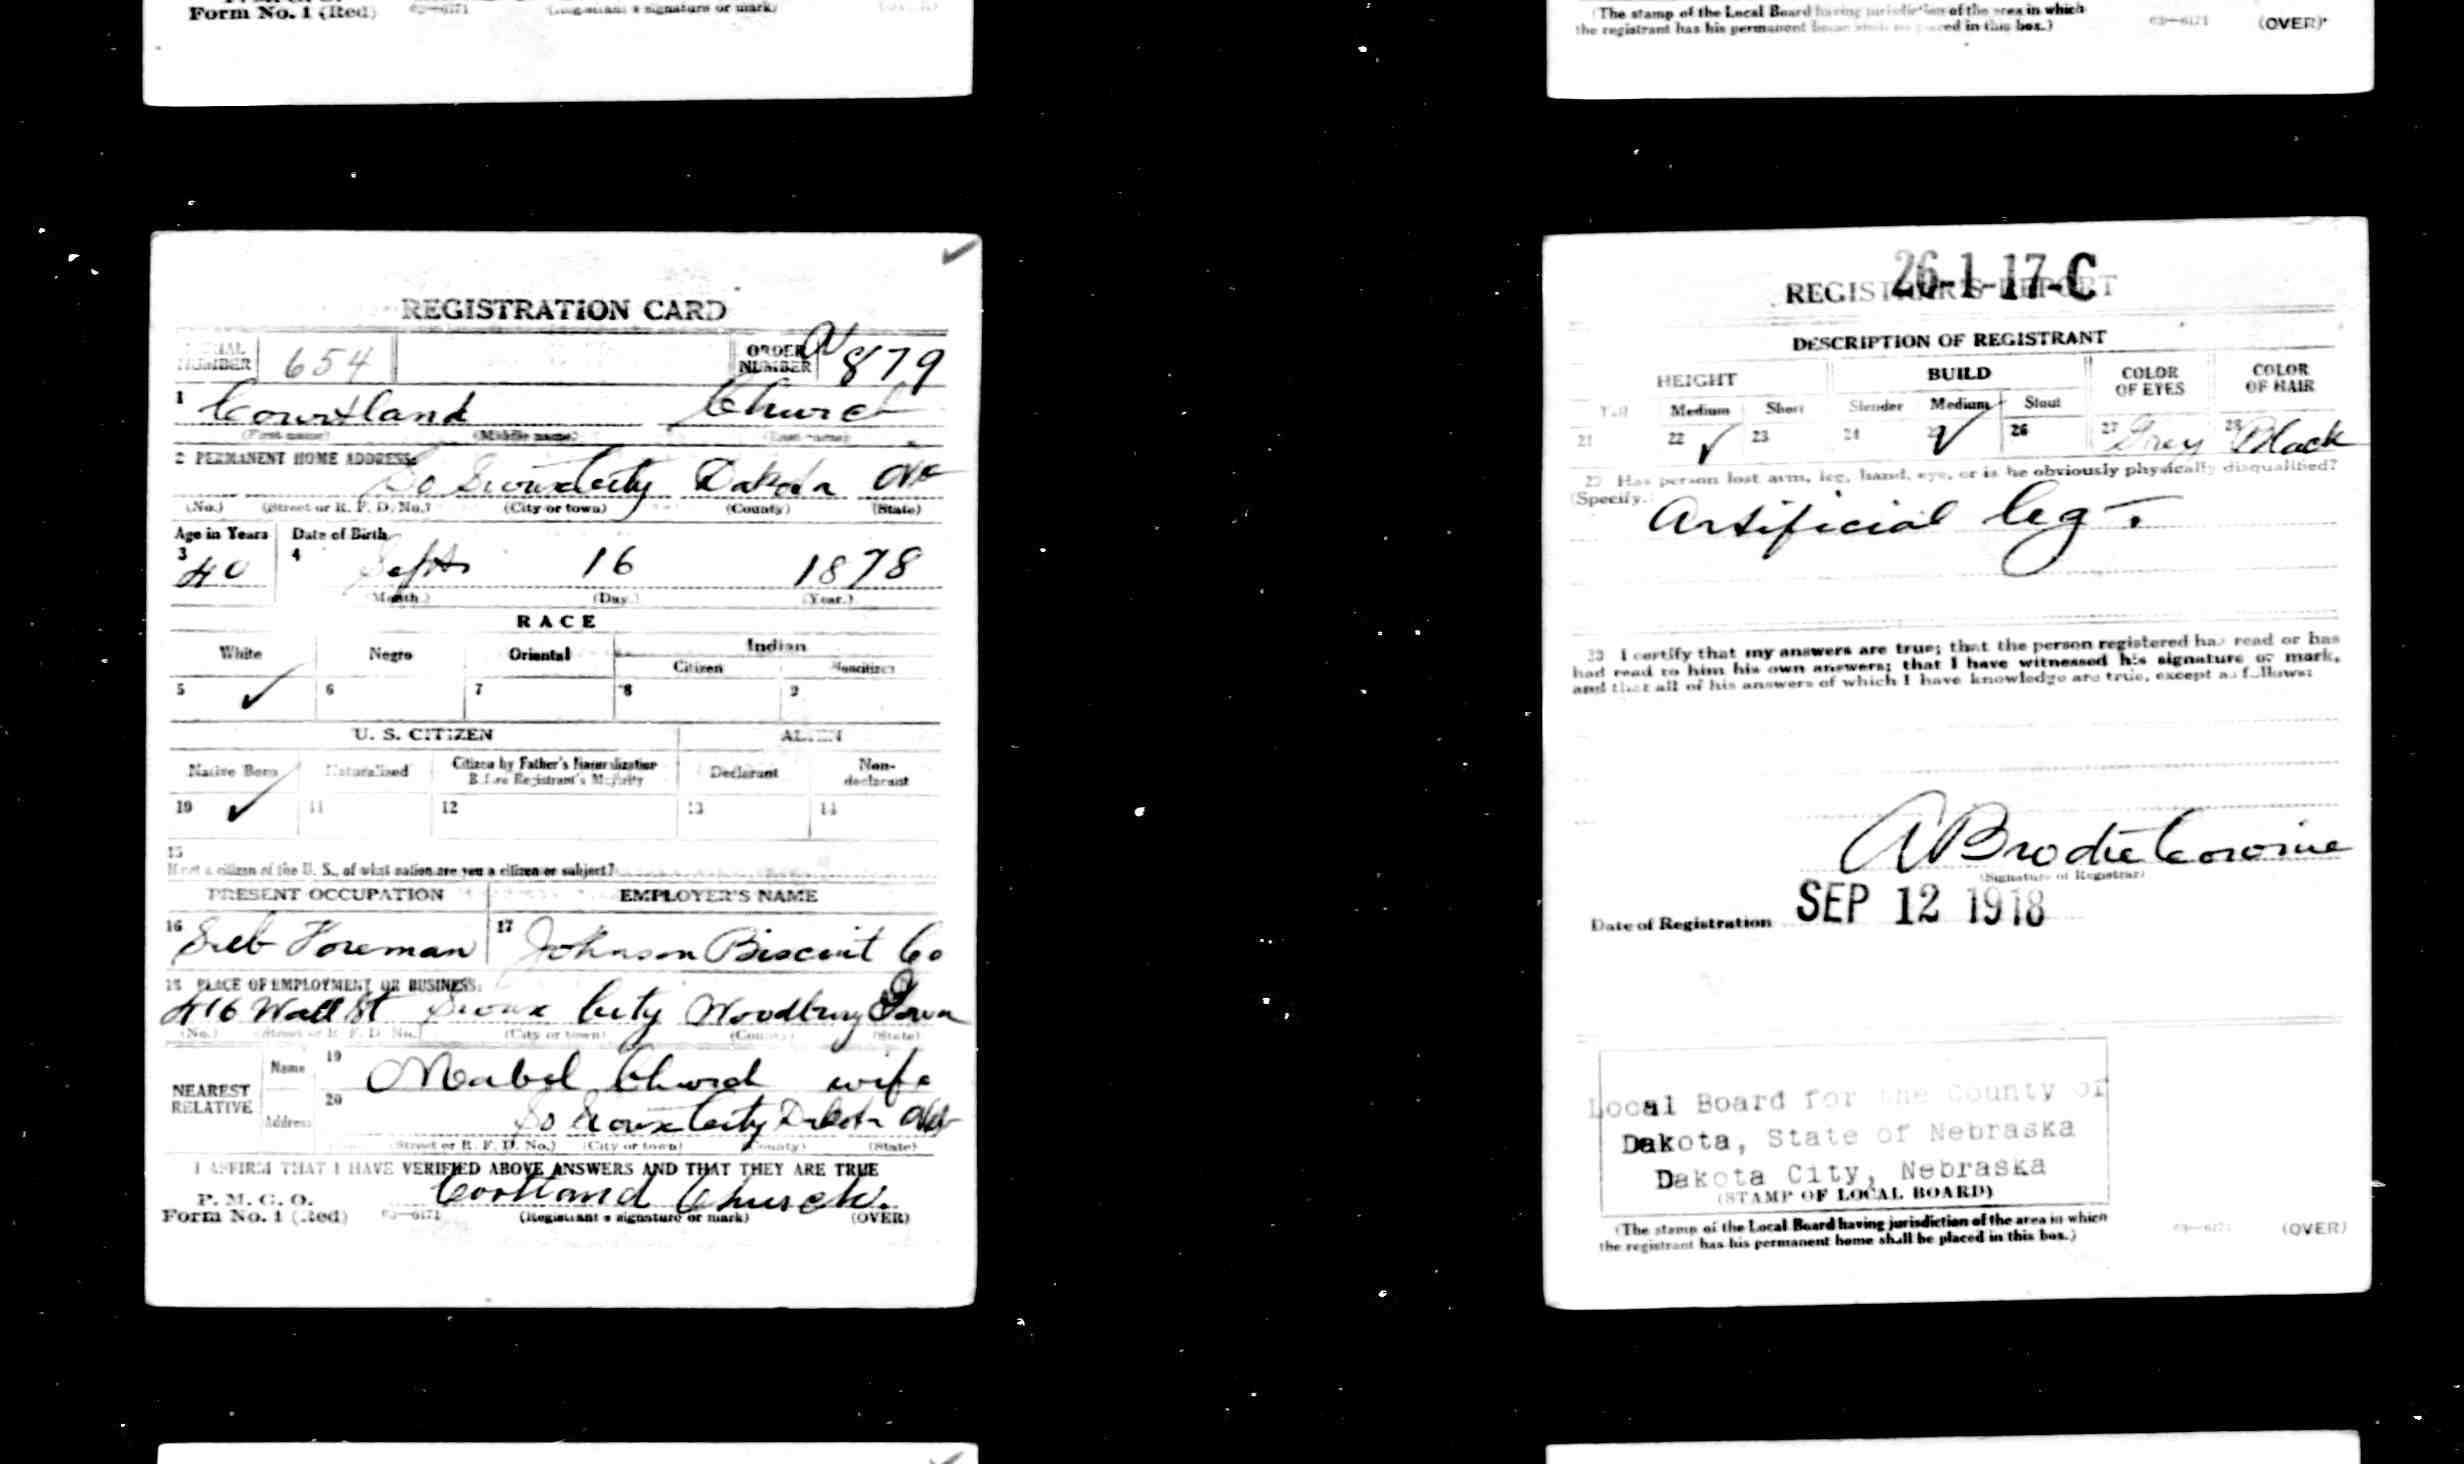 Form No. 1 (Red)
(Registrant's signature or mark)
(The stamp of the Local Board having jurisdiction of the area in which
the registrant has his permanent home shall be placed in this box.)
03—6171
(OVER)
REGISTRATION CARD
SERIAL NUMBER 654
ORDER NUMBER A 879
1 Courtland Church
(First name) (Middle name) (Last name)
2 PERMANENT HOME ADDRESS:
So Sioux City Dakota Neb
(No.) (Street or R. F. D. No.) (City or town) (County) (State)
Age in Years Date of Birth
3 40 4 Sept 16 1878
(Month.) (Day.) (Year.)
RACE
White Negro Oriental Indian
Citizen Noncitizen
5 ✓ 6 7 8 9
U. S. CITIZEN ALIEN
Native Born Naturalized Citizen by Father's Naturalization Before Registrant's Majority Declarant Non-declarant
10 ✓ 11 12 13 14
15
If not a citizen of the U. S., of what nation are you a citizen or subject?
PRESENT OCCUPATION EMPLOYER'S NAME
16 Foreman 17 Johnson Biscuit Co
18 PLACE OF EMPLOYMENT OR BUSINESS:
416 Wall St Sioux City Woodbury Iowa
(No.) (Street or R. F. D. No.) (City or town) (County) (State)
NEAREST RELATIVE
Name 19 Mabel Church wife
Address 20 So Sioux City Dakota Neb
(Street or R. F. D. No.) (City or town) (County) (State)
I AFFIRM THAT I HAVE VERIFIED ABOVE ANSWERS AND THAT THEY ARE TRUE
P. M. G. O.
Form No. 1 (Red) 03—6171 Cortland Church.
(Registrant's signature or mark) (OVER)
26-1-17-C
REGISTRAR'S REPORT
DESCRIPTION OF REGISTRANT
HEIGHT BUILD COLOR OF EYES COLOR OF HAIR
Tall Medium Short Slender Medium Stout
21 22 ✓ 23 24 ✓ 26 27 Grey 28 Black
29 Has person lost arm, leg, hand, eye, or is he obviously physically disqualified?
(Specify.)
Artificial leg.
30 I certify that my answers are true; that the person registered has read or has
had read to him his own answers; that I have witnessed his signature or mark,
and that all of his answers of which I have knowledge are true, except as follows:
A Brodie
(Signature of Registrar)
Date of Registration SEP 12 1918
Local Board for the County of
Dakota, State of Nebraska
Dakota City, Nebraska
(STAMP OF LOCAL BOARD)
(The stamp of the Local Board having jurisdiction of the area in which
the registrant has his permanent home shall be placed in this box.)
03—6171 (OVER)